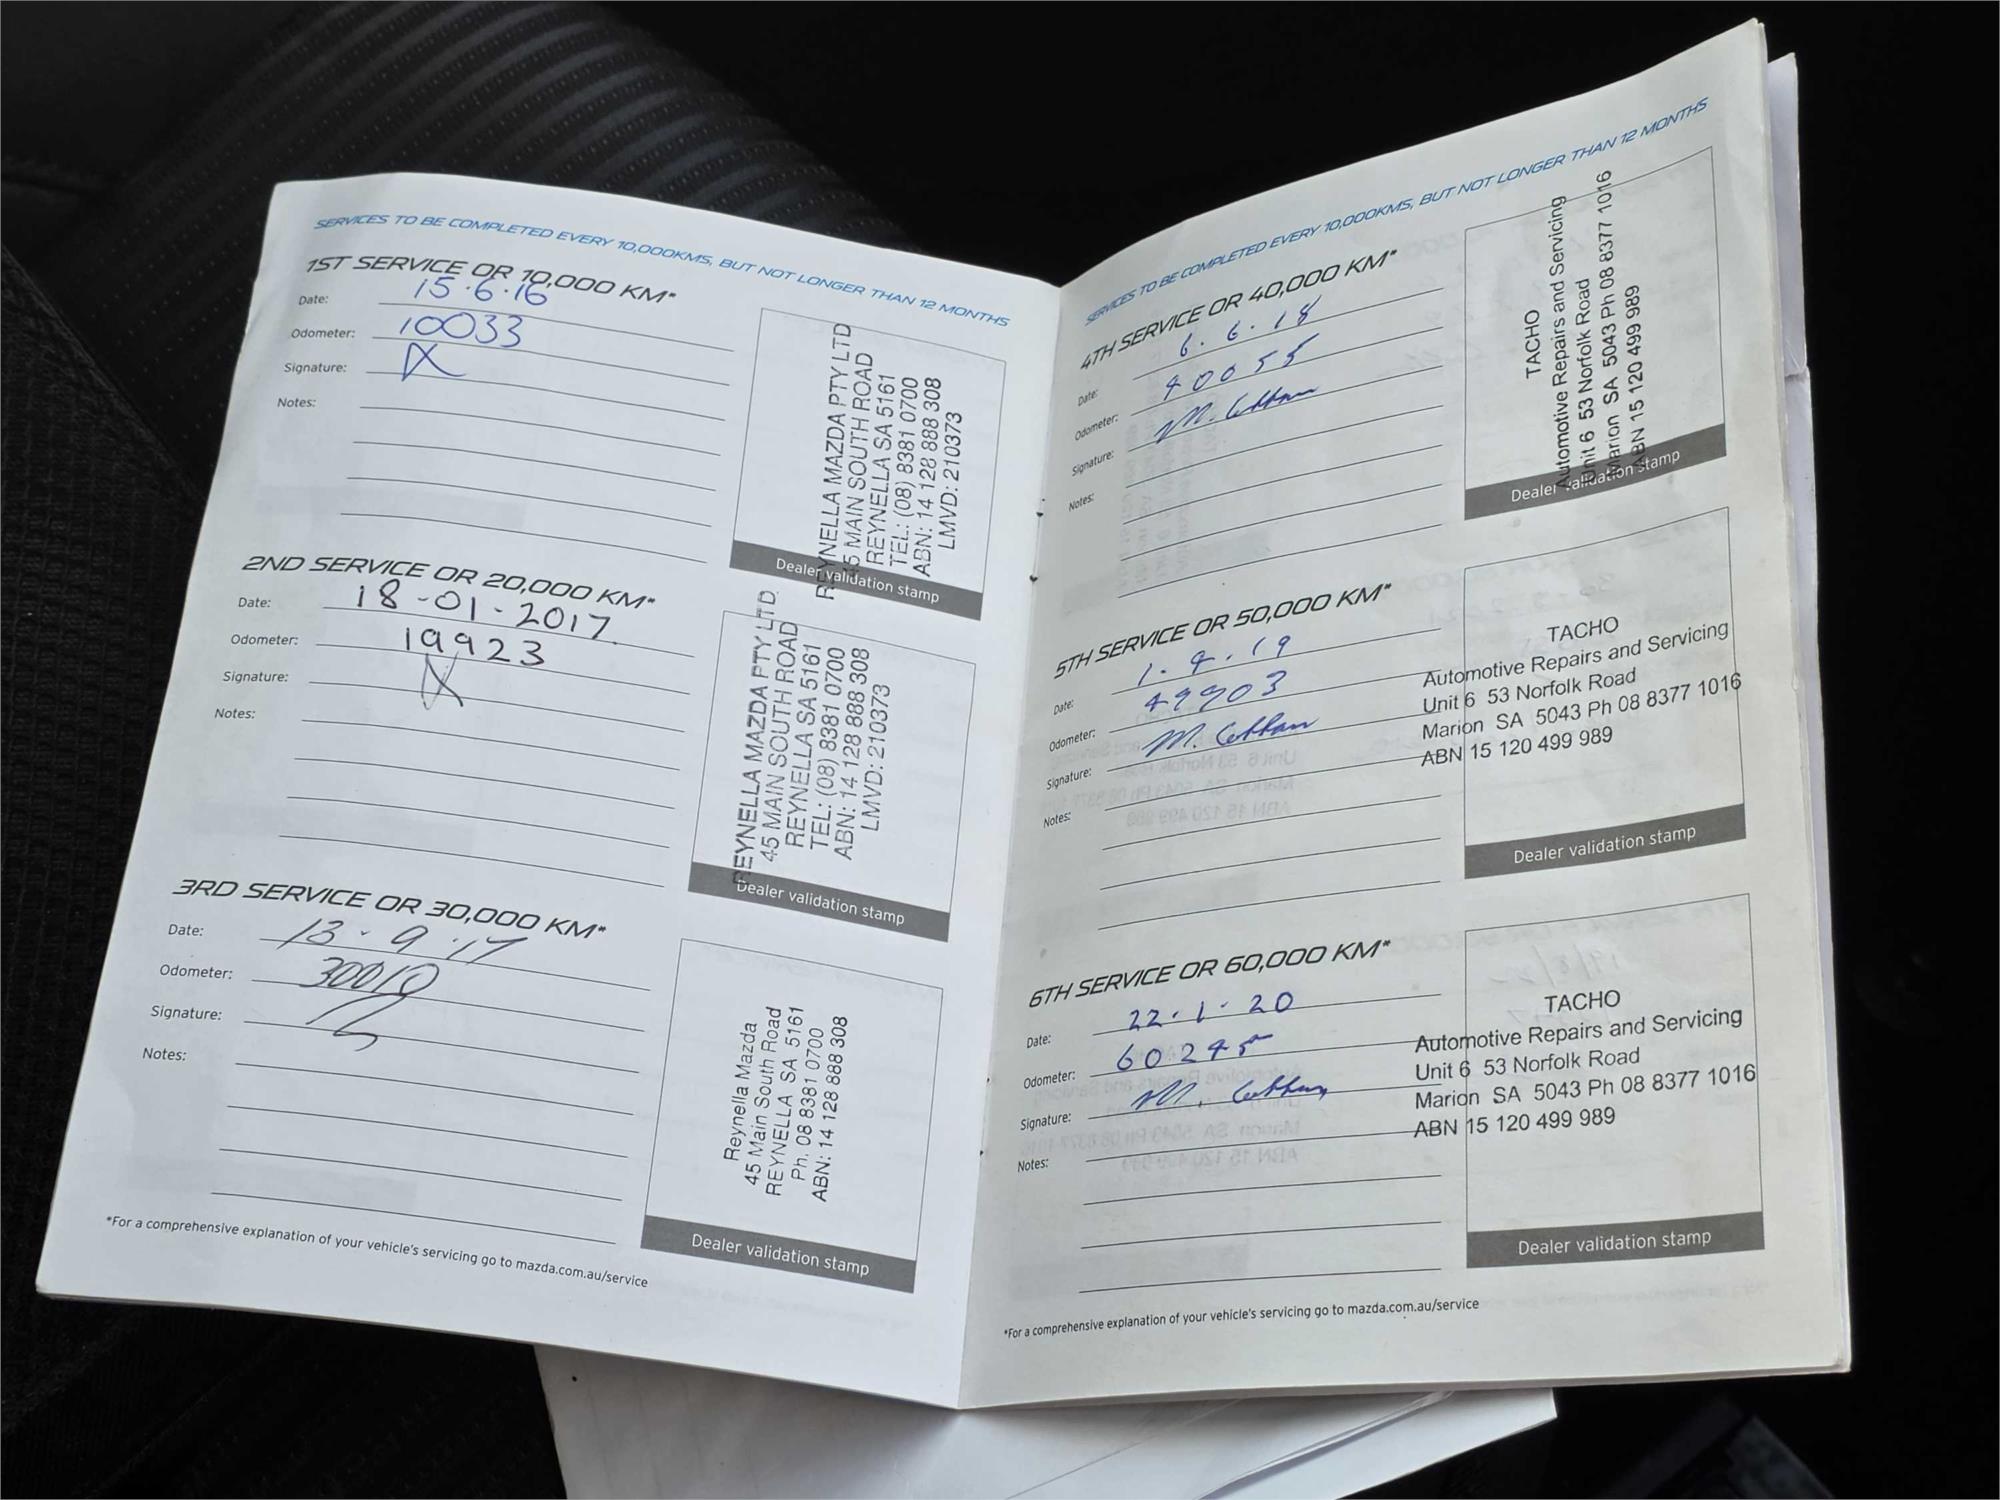 SERVICES TO BE COMPLETED EVERY 10,000KMS, BUT NOT LONGER THAN 12 MONTHS
1ST SERVICE OR 10,000 KM*
Date: 15.6.16
Odometer: 10033
Signature:
Notes:
REYNELLA MAZDA PTY LTD
45 MAIN SOUTH ROAD
REYNELLA SA 5161
TEL: (08) 8381 0700
ABN: 14 128 888 308
LMVD: 210373
Dealer validation stamp
2ND SERVICE OR 20,000 KM*
Date: 18-01-2017
Odometer: 19923
Signature:
Notes:
REYNELLA MAZDA PTY LTD
45 MAIN SOUTH ROAD
REYNELLA SA 5161
TEL: (08) 8381 0700
ABN: 14 128 888 308
LMVD: 210373
Dealer validation stamp
3RD SERVICE OR 30,000 KM*
Date: 13-9-17
Odometer: 30010
Signature:
Notes:
Reynella Mazda
45 Main South Road
REYNELLA SA 5161
Ph. 08 8381 0700
ABN: 14 128 888 308
Dealer validation stamp
*For a comprehensive explanation of your vehicle's servicing go to mazda.com.au/service
SERVICES TO BE COMPLETED EVERY 10,000KMS, BUT NOT LONGER THAN 12 MONTHS
4TH SERVICE OR 40,000 KM*
Date: 6.6.18
Odometer: 40055
Signature: M.
Notes:
TACHO
Automotive Repairs and Servicing
Unit 6 53 Norfolk Road
Marion SA 5043 Ph 08 8377 1016
ABN 15 120 499 989
Dealer validation stamp
5TH SERVICE OR 50,000 KM*
Date: 1.4.19
Odometer: 49903
Signature: M.
Notes:
TACHO
Automotive Repairs and Servicing
Unit 6 53 Norfolk Road
Marion SA 5043 Ph 08 8377 1016
ABN 15 120 499 989
Dealer validation stamp
6TH SERVICE OR 60,000 KM*
Date: 22.1.20
Odometer: 60245
Signature: M.
Notes:
TACHO
Automotive Repairs and Servicing
Unit 6 53 Norfolk Road
Marion SA 5043 Ph 08 8377 1016
ABN 15 120 499 989
Dealer validation stamp
*For a comprehensive explanation of your vehicle's servicing go to mazda.com.au/service